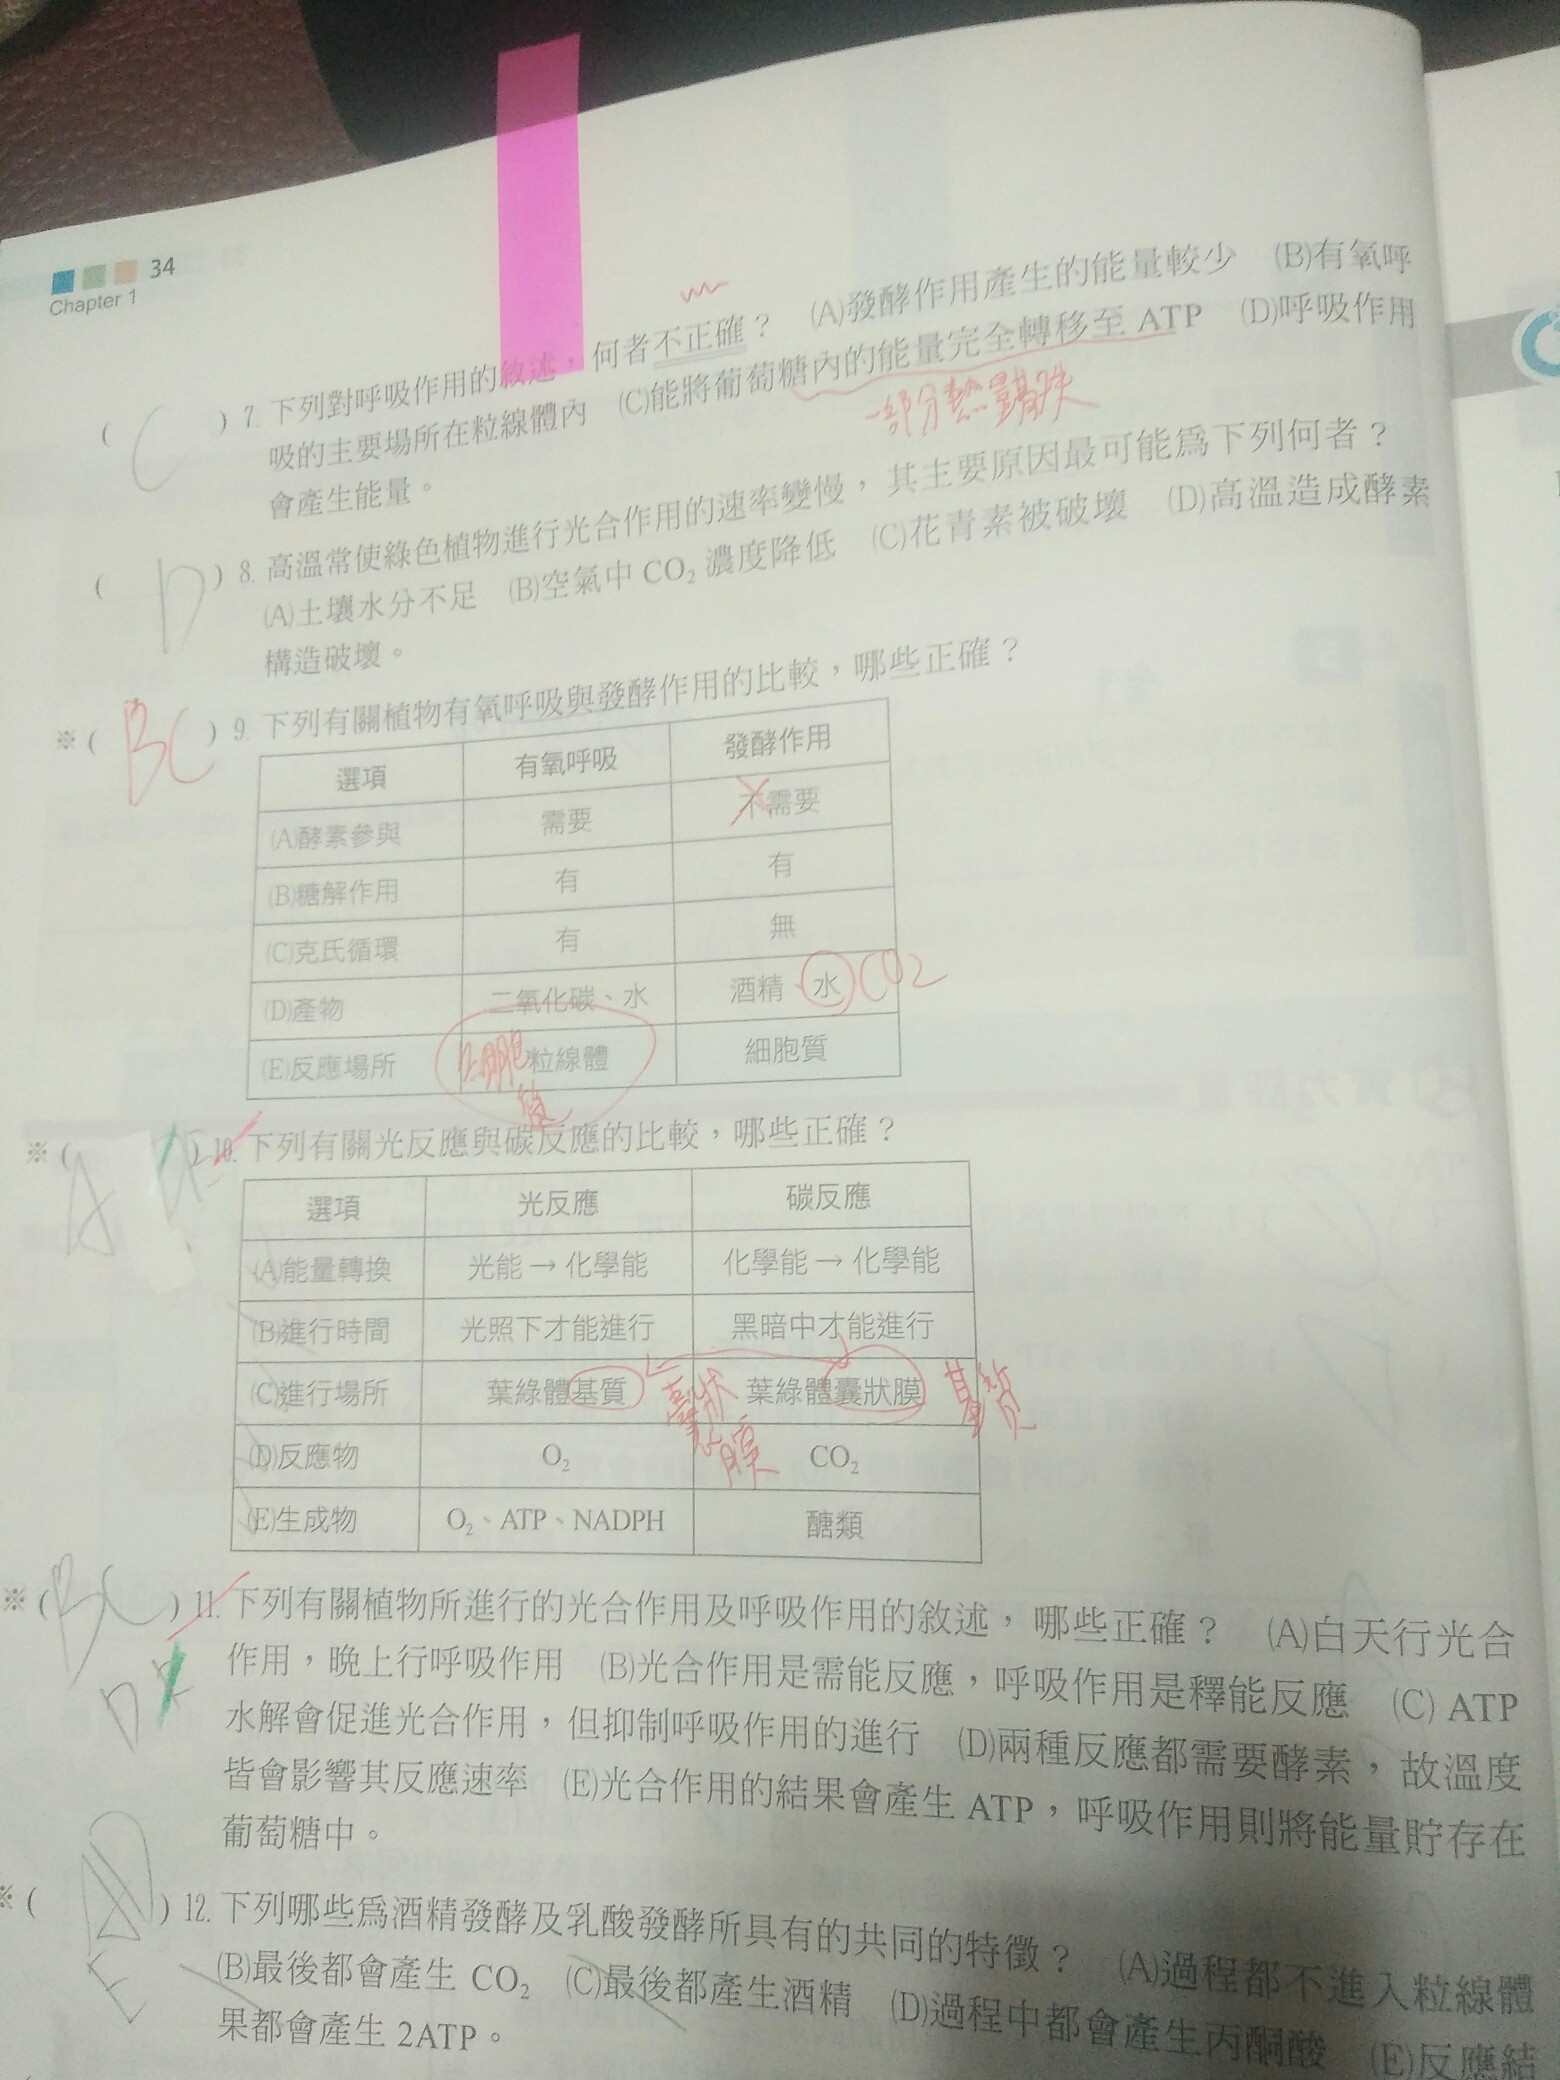 34
Chapter 1
( C ) 7. 下列對呼吸作用的敘述，何者不正確？ (A)發酵作用產生的能量較少 (B)有氧呼
吸的主要場所在粒線體內 (C)能將葡萄糖內的能量完全轉移至 ATP (D)呼吸作用
一部分熱量散失
會產生能量。
( D ) 8. 高溫常使綠色植物進行光合作用的速率變慢，其主要原因最可能為下列何者？
(A)土壤水分不足 (B)空氣中 CO₂ 濃度降低 (C)花青素被破壞 (D)高溫造成酵素
構造破壞。
※( BC ) 9. 下列有關植物有氧呼吸與發酵作用的比較，哪些正確？
選項 有氧呼吸 發酵作用
(A)酵素參與 需要 不需要
(B)糖解作用 有 有
(C)克氏循環 有 無
(D)產物 二氧化碳、水 酒精、水 CO2
(E)反應場所 細胞質 粒線體 細胞質
※( A ) 10. 下列有關光反應與碳反應的比較，哪些正確？
選項 光反應 碳反應
(A)能量轉換 光能 → 化學能 化學能 → 化學能
(B)進行時間 光照下才能進行 黑暗中才能進行
(C)進行場所 葉綠體基質 囊狀膜 葉綠體囊狀膜 基質
(D)反應物 O₂ CO₂
(E)生成物 O₂、ATP、NADPH 醣類
※( BC ) 11. 下列有關植物所進行的光合作用及呼吸作用的敘述，哪些正確？ (A)白天行光合
D
作用，晚上行呼吸作用 (B)光合作用是需能反應，呼吸作用是釋能反應 (C) ATP
水解會促進光合作用，但抑制呼吸作用的進行 (D)兩種反應都需要酵素，故溫度
皆會影響其反應速率 (E)光合作用的結果會產生 ATP，呼吸作用則將能量貯存在
葡萄糖中。
※( ) 12. 下列哪些為酒精發酵及乳酸發酵所具有的共同的特徵？ (A)過程都不進入粒線體
E
(B)最後都會產生 CO₂ (C)最後都產生酒精 (D)過程中都會產生丙酮酸 (E)反應結
果都會產生 2ATP。